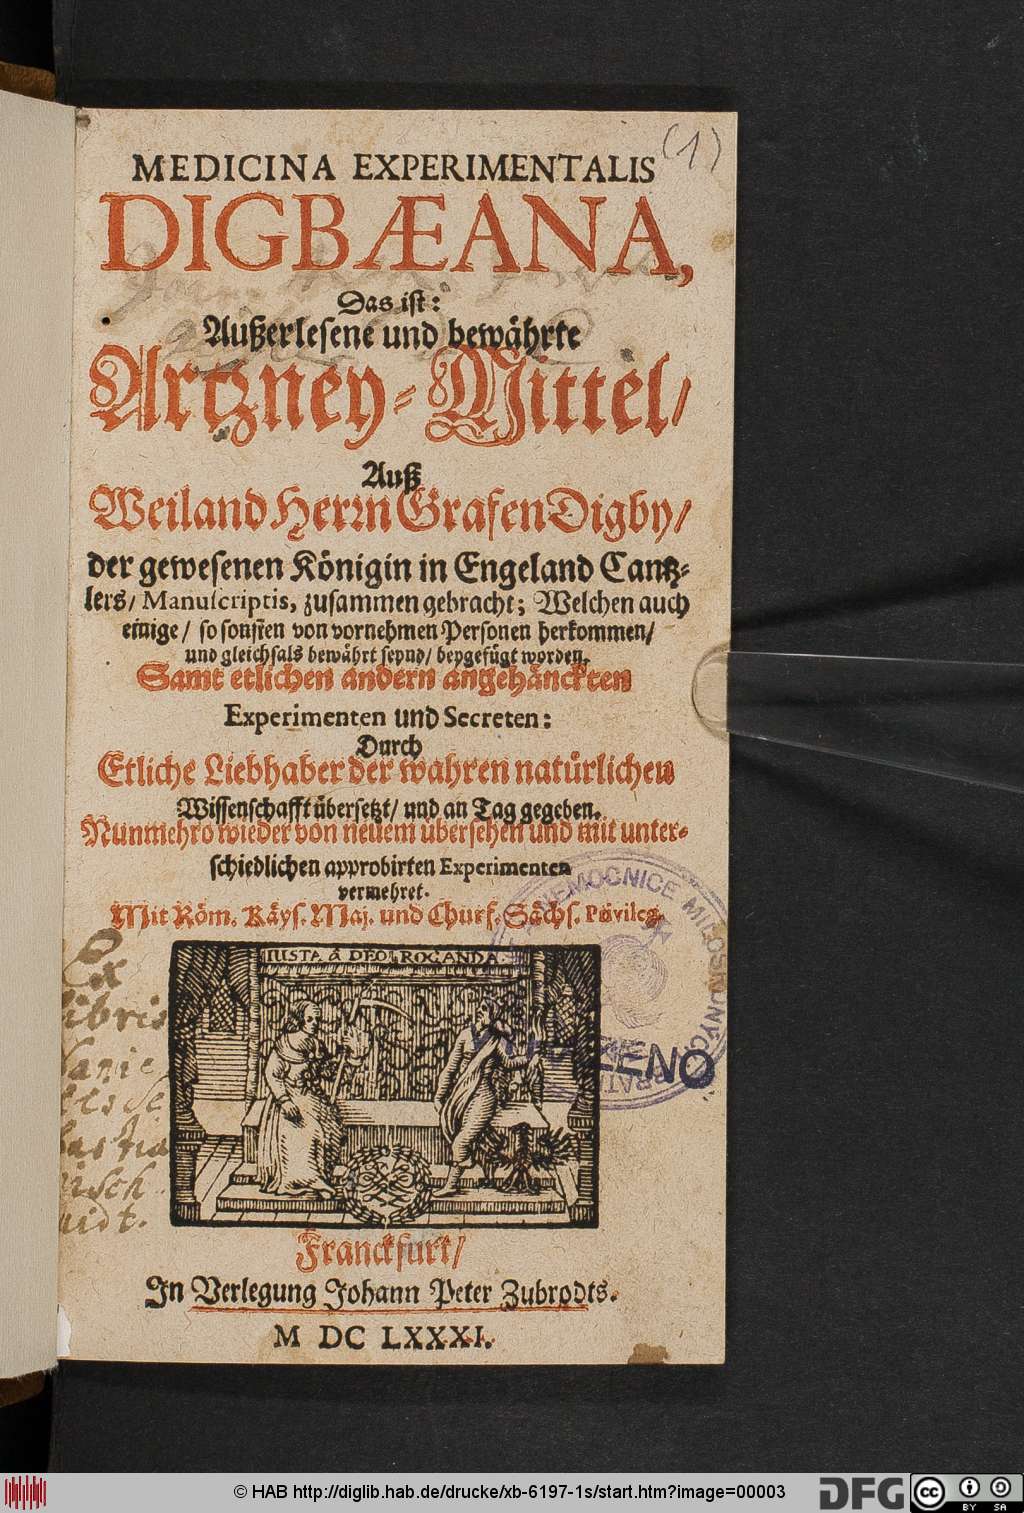 (1)
MEDICINA EXPERIMENTALIS
DIGBÆANA,
Das ist:
Außerlesene und bewährte
Artzney-Mittel/
Auß
Weiland Herrn Grafen Digby/
der gewesenen Königin in Engeland Cantz-
lers/ Manuscriptis, zusammen gebracht; Welchen auch
einige/ so sonsten von vornehmen Personen herkommen/
und gleichfals bewährt seynd/ beygefügt worden.
Samt etlichen andern angehänckten
Experimenten und Secreten:
Durch
Etliche Liebhaber der wahren natürlichen
Wissenschafft übersetzt/ und an Tag gegeben.
Nunmehro wieder von neuem übersehen und mit unter-
schiedlichen approbirten Experimenten
vermehret.
Mit Röm. Käys. Maj. und Churf. Sächs. Privileg.
NEMOCNICE MILOSRDNÝCH
BRAT
IUSTA á DEO ROGANDA.
Ex
libris
Franckfurt/
In Verlegung Johann Peter Zubrodts.
M DC LXXXI.
© HAB http://diglib.hab.de/drucke/xb-6197-1s/start.htm?image=00003
DFG
cc
BY SA